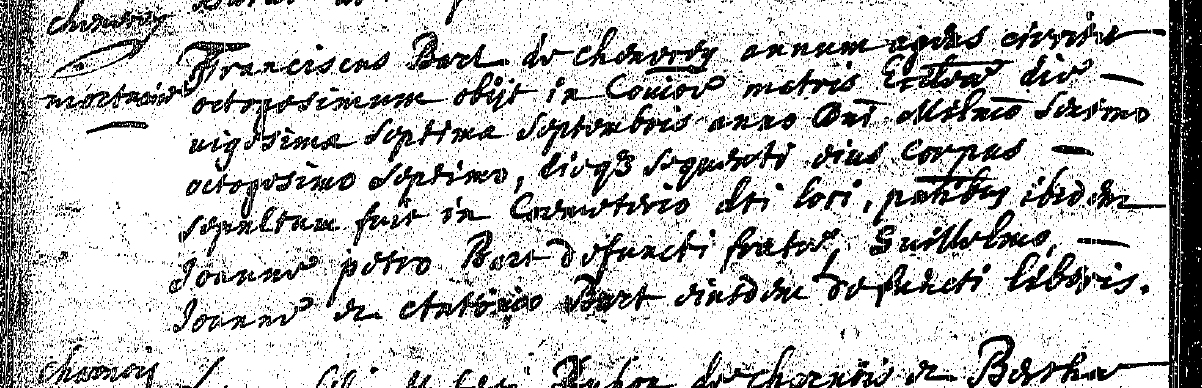 chenvrey
mortuus
Franciscus Bart de chenvrey annum agens circiter
octogesimum obijt in Cōioē matris Ecclae die
vigesima septima septembris anno Dni Milmo sexmo
octogesimo septimo, dieqz sequenti eius corpus
sepultum fuit in Coemeterio dti loci, pntibus ibidem
Joanne petro Bart defuncti fratre, Guillelmo,
Joanne et Antonio Bart eiusdem defuncti liberis.
de
et